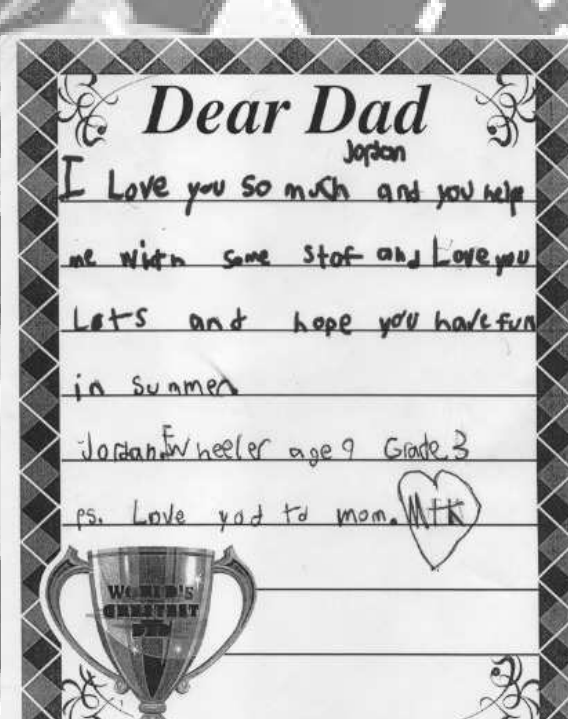 Dear Dad
Jordan
I Love you so much and you help
me with some stof and Love you
Lots and hope you have fun
in summer
Jordan.E.Wheeler age 9 Grade 3
ps. Love yod td mom. M+K
WORLD'S
GREATEST
DAD